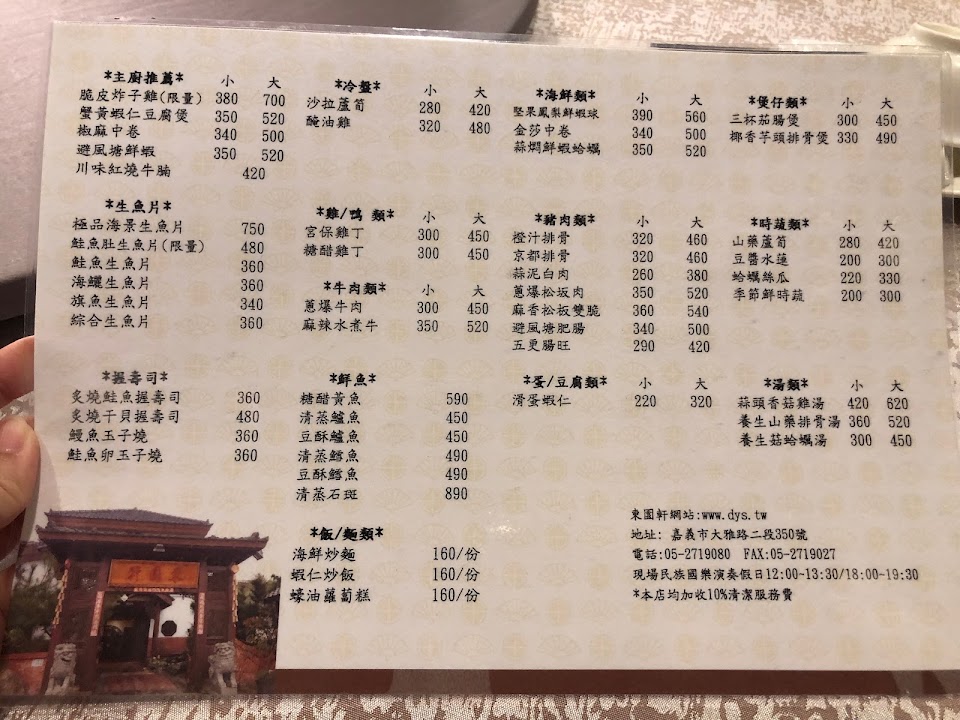 *主廚推薦* 小 大
脆皮炸子雞(限量) 380 700
蟹黃蝦仁豆腐煲 350 520
椒麻中卷 340 500
避風塘鮮蝦 350 520
川味紅燒牛腩 420
*生魚片*
極品海景生魚片 750
鮭魚肚生魚片(限量) 480
鮭魚生魚片 360
海鱺生魚片 360
旗魚生魚片 340
綜合生魚片 360
*握壽司*
炙燒鮭魚握壽司 360
炙燒干貝握壽司 480
鰻魚玉子燒 360
鮭魚卵玉子燒 360
*冷盤* 小 大
沙拉蘆筍 280 420
醃油雞 320 480
*雞/鴨 類* 小 大
宮保雞丁 300 450
糖醋雞丁 300 450
*牛肉類* 小 大
蔥爆牛肉 300 450
麻辣水煮牛 350 520
*鮮魚*
糖醋黃魚 590
清蒸鱸魚 450
豆酥鱸魚 450
清蒸鱈魚 490
豆酥鱈魚 490
清蒸石斑 890
*飯/麵類*
海鮮炒麵 160/份
蝦仁炒飯 160/份
蠔油蘿蔔糕 160/份
*海鮮類* 小 大
堅果鳳梨鮮蝦球 390 560
金莎中卷 340 500
蒜燜鮮蝦蛤蠣 350 520
*豬肉類* 小 大
橙汁排骨 320 460
京都排骨 320 460
蒜泥白肉 260 380
蔥爆松坂肉 350 520
麻香松板雙脆 360 540
避風塘肥腸 340 500
五更腸旺 290 420
*蛋/豆腐類* 小 大
滑蛋蝦仁 220 320
*煲仔類* 小 大
三杯茄腸煲 300 450
椰香芋頭排骨煲 330 490
*時蔬類* 小 大
山藥蘆筍 280 420
豆醬水蓮 200 300
蛤蠣絲瓜 220 330
季節鮮時蔬 200 300
*湯類* 小 大
蒜頭香菇雞湯 420 620
養生山藥排骨湯 360 520
養生菇蛤蠣湯 300 450
東園軒網站:www.dys.tw
地址: 嘉義市大雅路二段350號
電話:05-2719080 FAX:05-2719027
現場民族國樂演奏假日12:00~13:30/18:00~19:30
*本店均加收10%清潔服務費